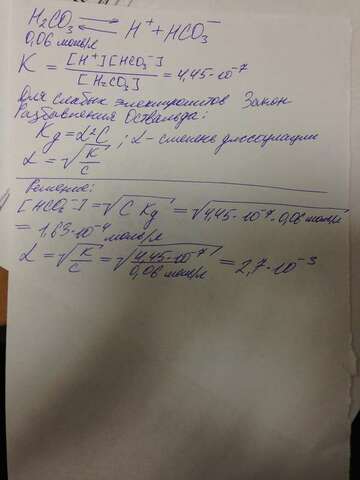 H₂CO₃ ⇌ H⁺ + HCO₃⁻
0,06 моль/л
K = [H⁺][HCO₃⁻] / [H₂CO₃] = 4,45·10⁻⁷
Для слабых электролитов Закон
Разбавления Оствальда:
Kд = α²C ; α - степень диссоциации
α = √(K/C)
Решение:
[HCO₃⁻] = √(C Kд) = √(4,45·10⁻⁷·0,06 моль/л)
= 1,63·10⁻⁴ моль/л
α = √(K/C) = √(4,45·10⁻⁷ / 0,06 моль/л) = 2,7·10⁻³